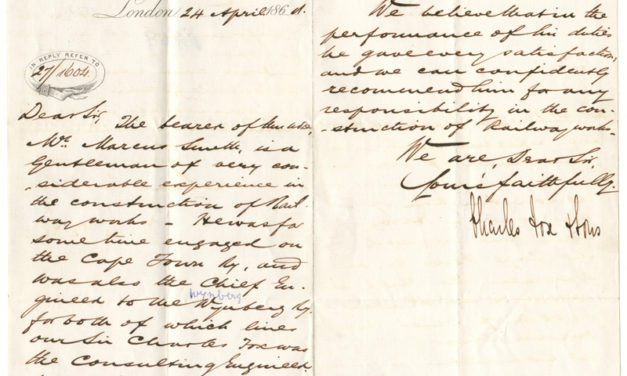 London 24 April 186
IN REPLY REFER TO
27/1604
Dear Sir,
The bearer of this letter,
Mr. Marcus Smith, is a
Gentleman of very con-
-siderable experience in
the construction of Rail-
way works – He was for
some time engaged on
the Cape Town Ry, and
was also the Chief En-
Wynberg
gineer to the Wynberg Ry.
for both of which lines
our Sir Charles Fox was
the Consulting Engineer.
We believe that in the
performance of his duties
he gave every satisfaction,
and we can confidently
recommend him for any
responsibility in the con-
-struction of Railway works.
We are, Dear Sir,
Yours faithfully,
Charles Fox & Sons